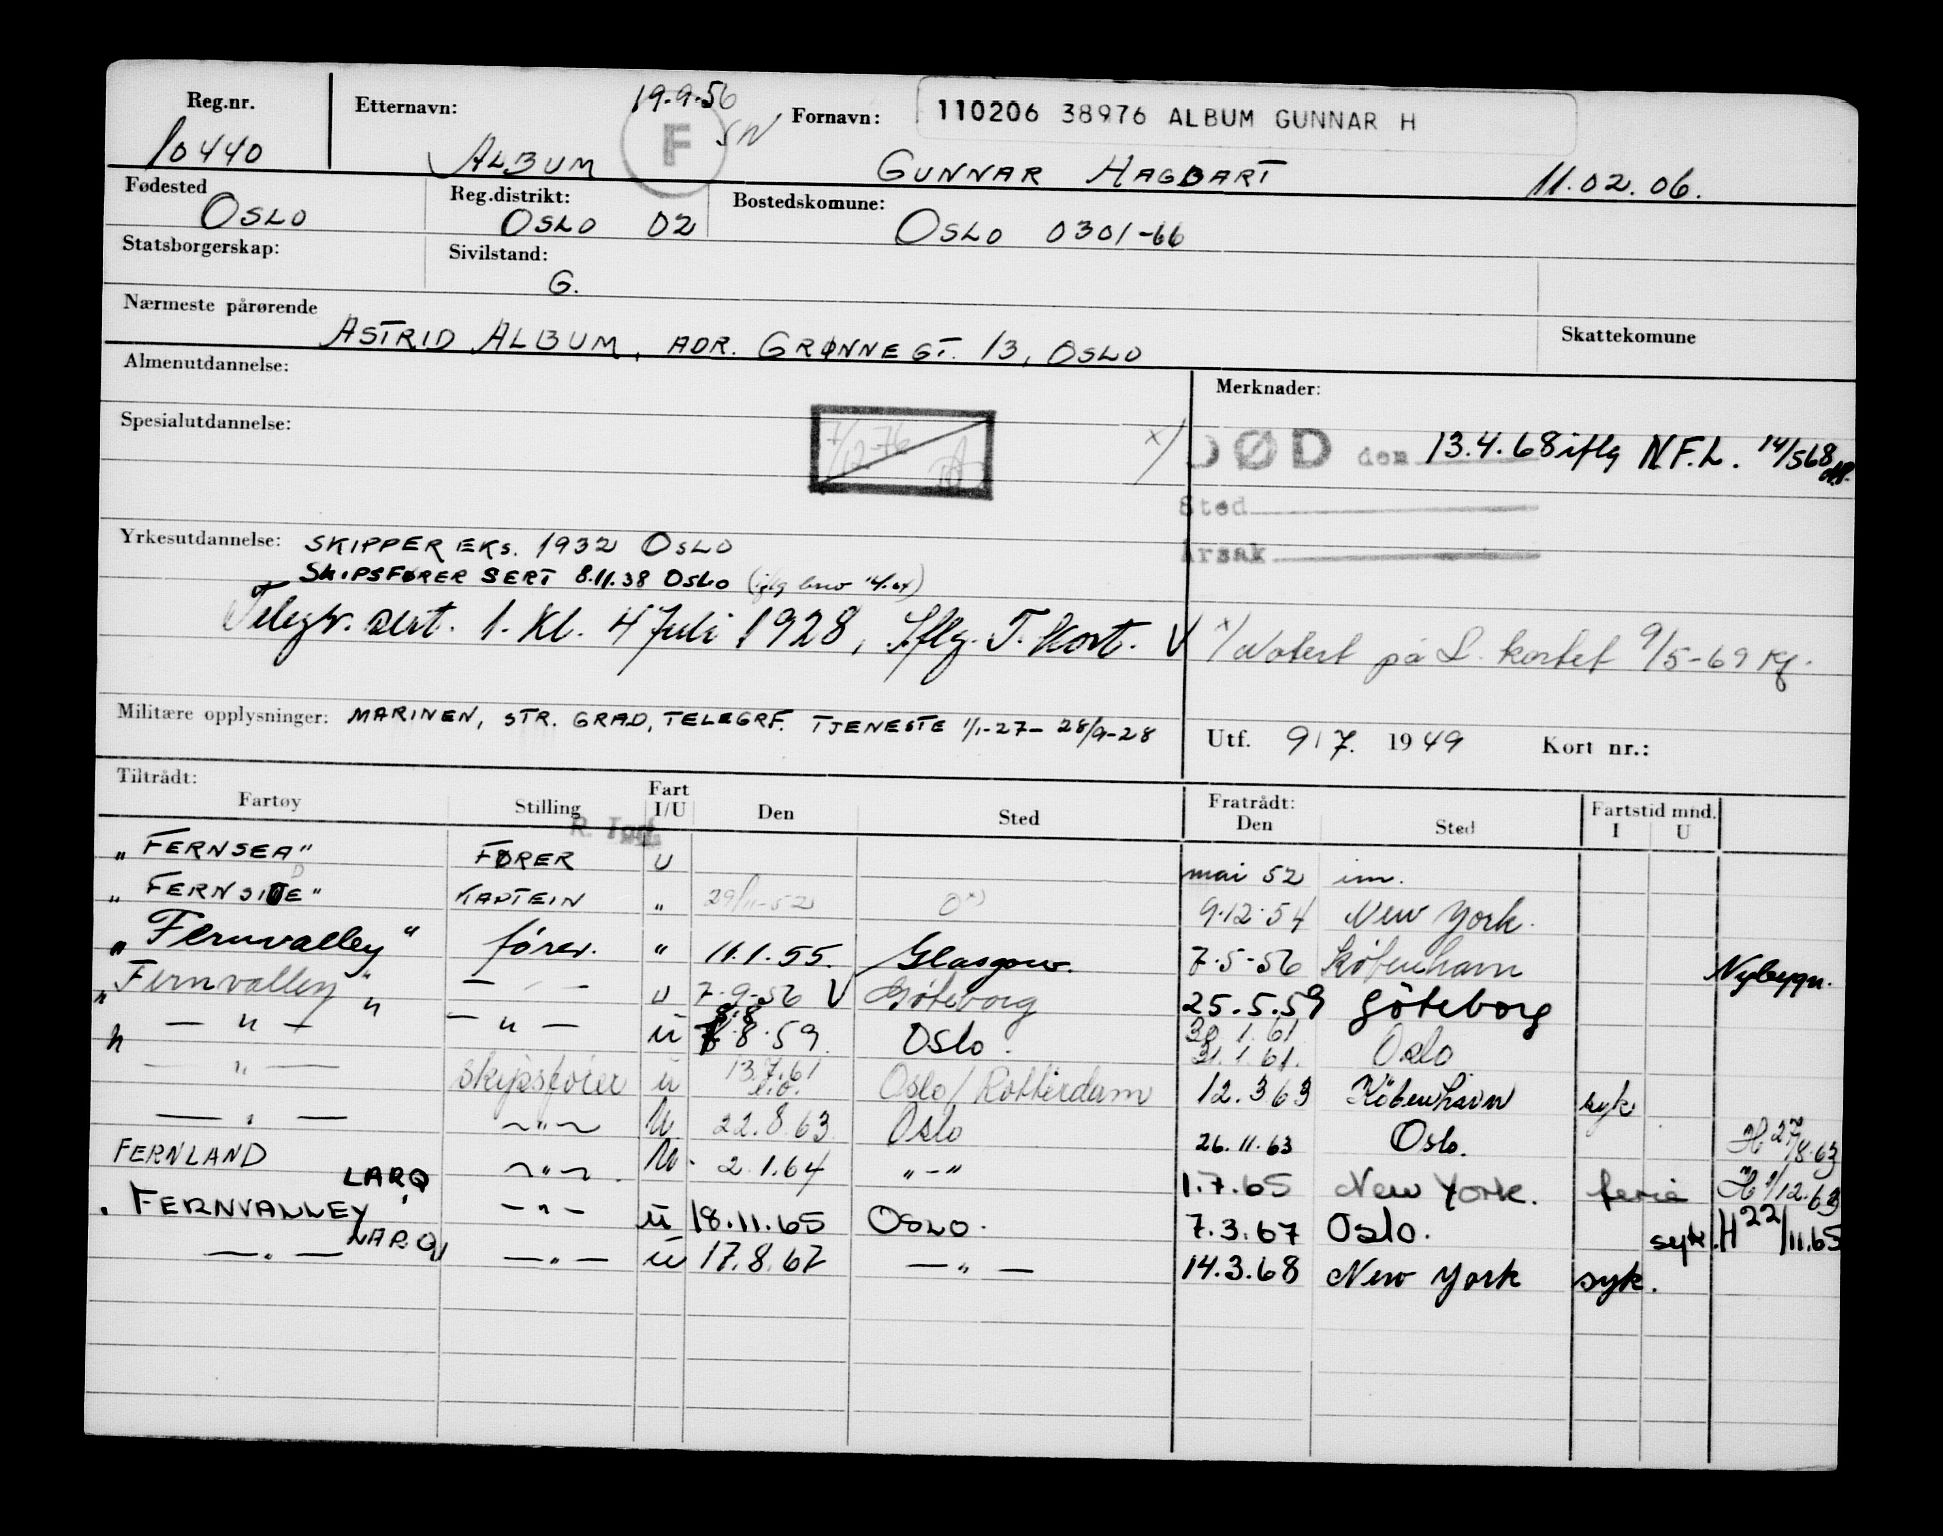 Reg.nr. Etternavn: 19.9.56 SW Fornavn: 110206 38976 ALBUM GUNNAR H
10440 ALBUM F GUNNAR HAGBART 11.02.06.
Fødested Reg.distrikt: Bostedskomune:
OSLO OSLO 02 OSLO 0301-66
Statsborgerskap: Sivilstand:
G.
Nærmeste pårørende Skattekomune
ASTRID ALBUM, ADR. GRØNNEGT. 13, OSLO
Almenutdannelse: Merknader:
Spesialutdannelse: 7/12-76 x) DØD den 13.4.68 iflg N.F.L. 14/5 68
Sted
Årsak
Yrkesutdannelse: SKIPPER EKS. 1932 OSLO
SKIPSFØRER SERT 8.11.38 OSLO (iflg brev
Telegr. sert. 1. Kl. 4 Juli 1928, Iflg. T. Kort. V x) Notert på S. kortet 9/5-69 Kf.
Militære opplysninger: MARINEN, STR. GRAD, TELEGRF. TJENESTE 1/1-27- 28/9-28 Utf. 9/7. 1949 Kort nr.:
Tiltrådt: Fratrådt: Fartstid mnd.
Fartøy Stilling Fart I/U Den Sted Den Sted I U
"FERNSEA" FØRER U mai 52 im.
"FERNSIDE" KAPTEIN " 29/11-52 9.12.54 New York.
"Fernvalley" fører. " 11.1.55. Glasgow. 7.5-56 København Nybygn.
"Fernvalley" — " — U 7.9-56 V Göteborg 25.5.59 Göteborg
" — " — — " — U 8.8 8.59. Oslo. 30.1.61 31.1.61. Oslo
— " — Skipsfører U 13.7.61 Oslo / Rotterdam 12.3 63 København syk
— " — — " — U 22.8.63 Oslo 26.11.63 Oslo. H 27/8.63
FERNLAND LARQ — " — U. 2.1.64 " — " 1.7.65 New York. ferie H 9/12.63
"FERNVALLEY LARQ — " — U 18.11.65 OSLO. 7.3.67 Oslo. syk. H 22/11.65
— " — — " — U 17.8.67 — " — 14.3.68 New York syk.